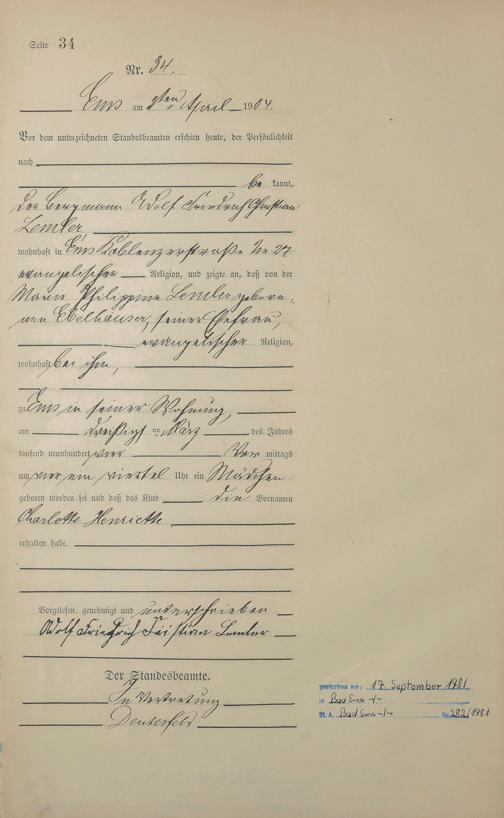 Seite 34
Nr. 34.
Ems am 2ten April 1904.
Vor dem unterzeichneten Standesbeamten erschien heute, der Persönlichkeit
nach
be kannt,
der Bergmann Adolf Friedrich Christian
Lemler
wohnhaft in Ems Koblenzerstraße Nr 27
evangelischer Religion, und zeigte an, daß von der
Maria Philippine Lemler gebore-
nen Ebelhäuser, seiner Ehefrau,
evangelischer Religion,
wohnhaft bei ihm,
zu Ems in seiner Wohnung,
am dreißigsten März des Jahres
tausend neunhundert vier Vor mittags
um ein viertel Uhr ein Mädchen
geboren worden sei und daß das Kind die Vornamen
Charlotte Henriette
erhalten habe.
Vorgelesen, genehmigt und unterschrieben
Adolf Friedrich Lemler
Der Standesbeamte.
In Vertretung
gestorben am: 17. September 1981
in Bad Ems -/-
St. A. Bad Ems -/- Nr. 282/1981